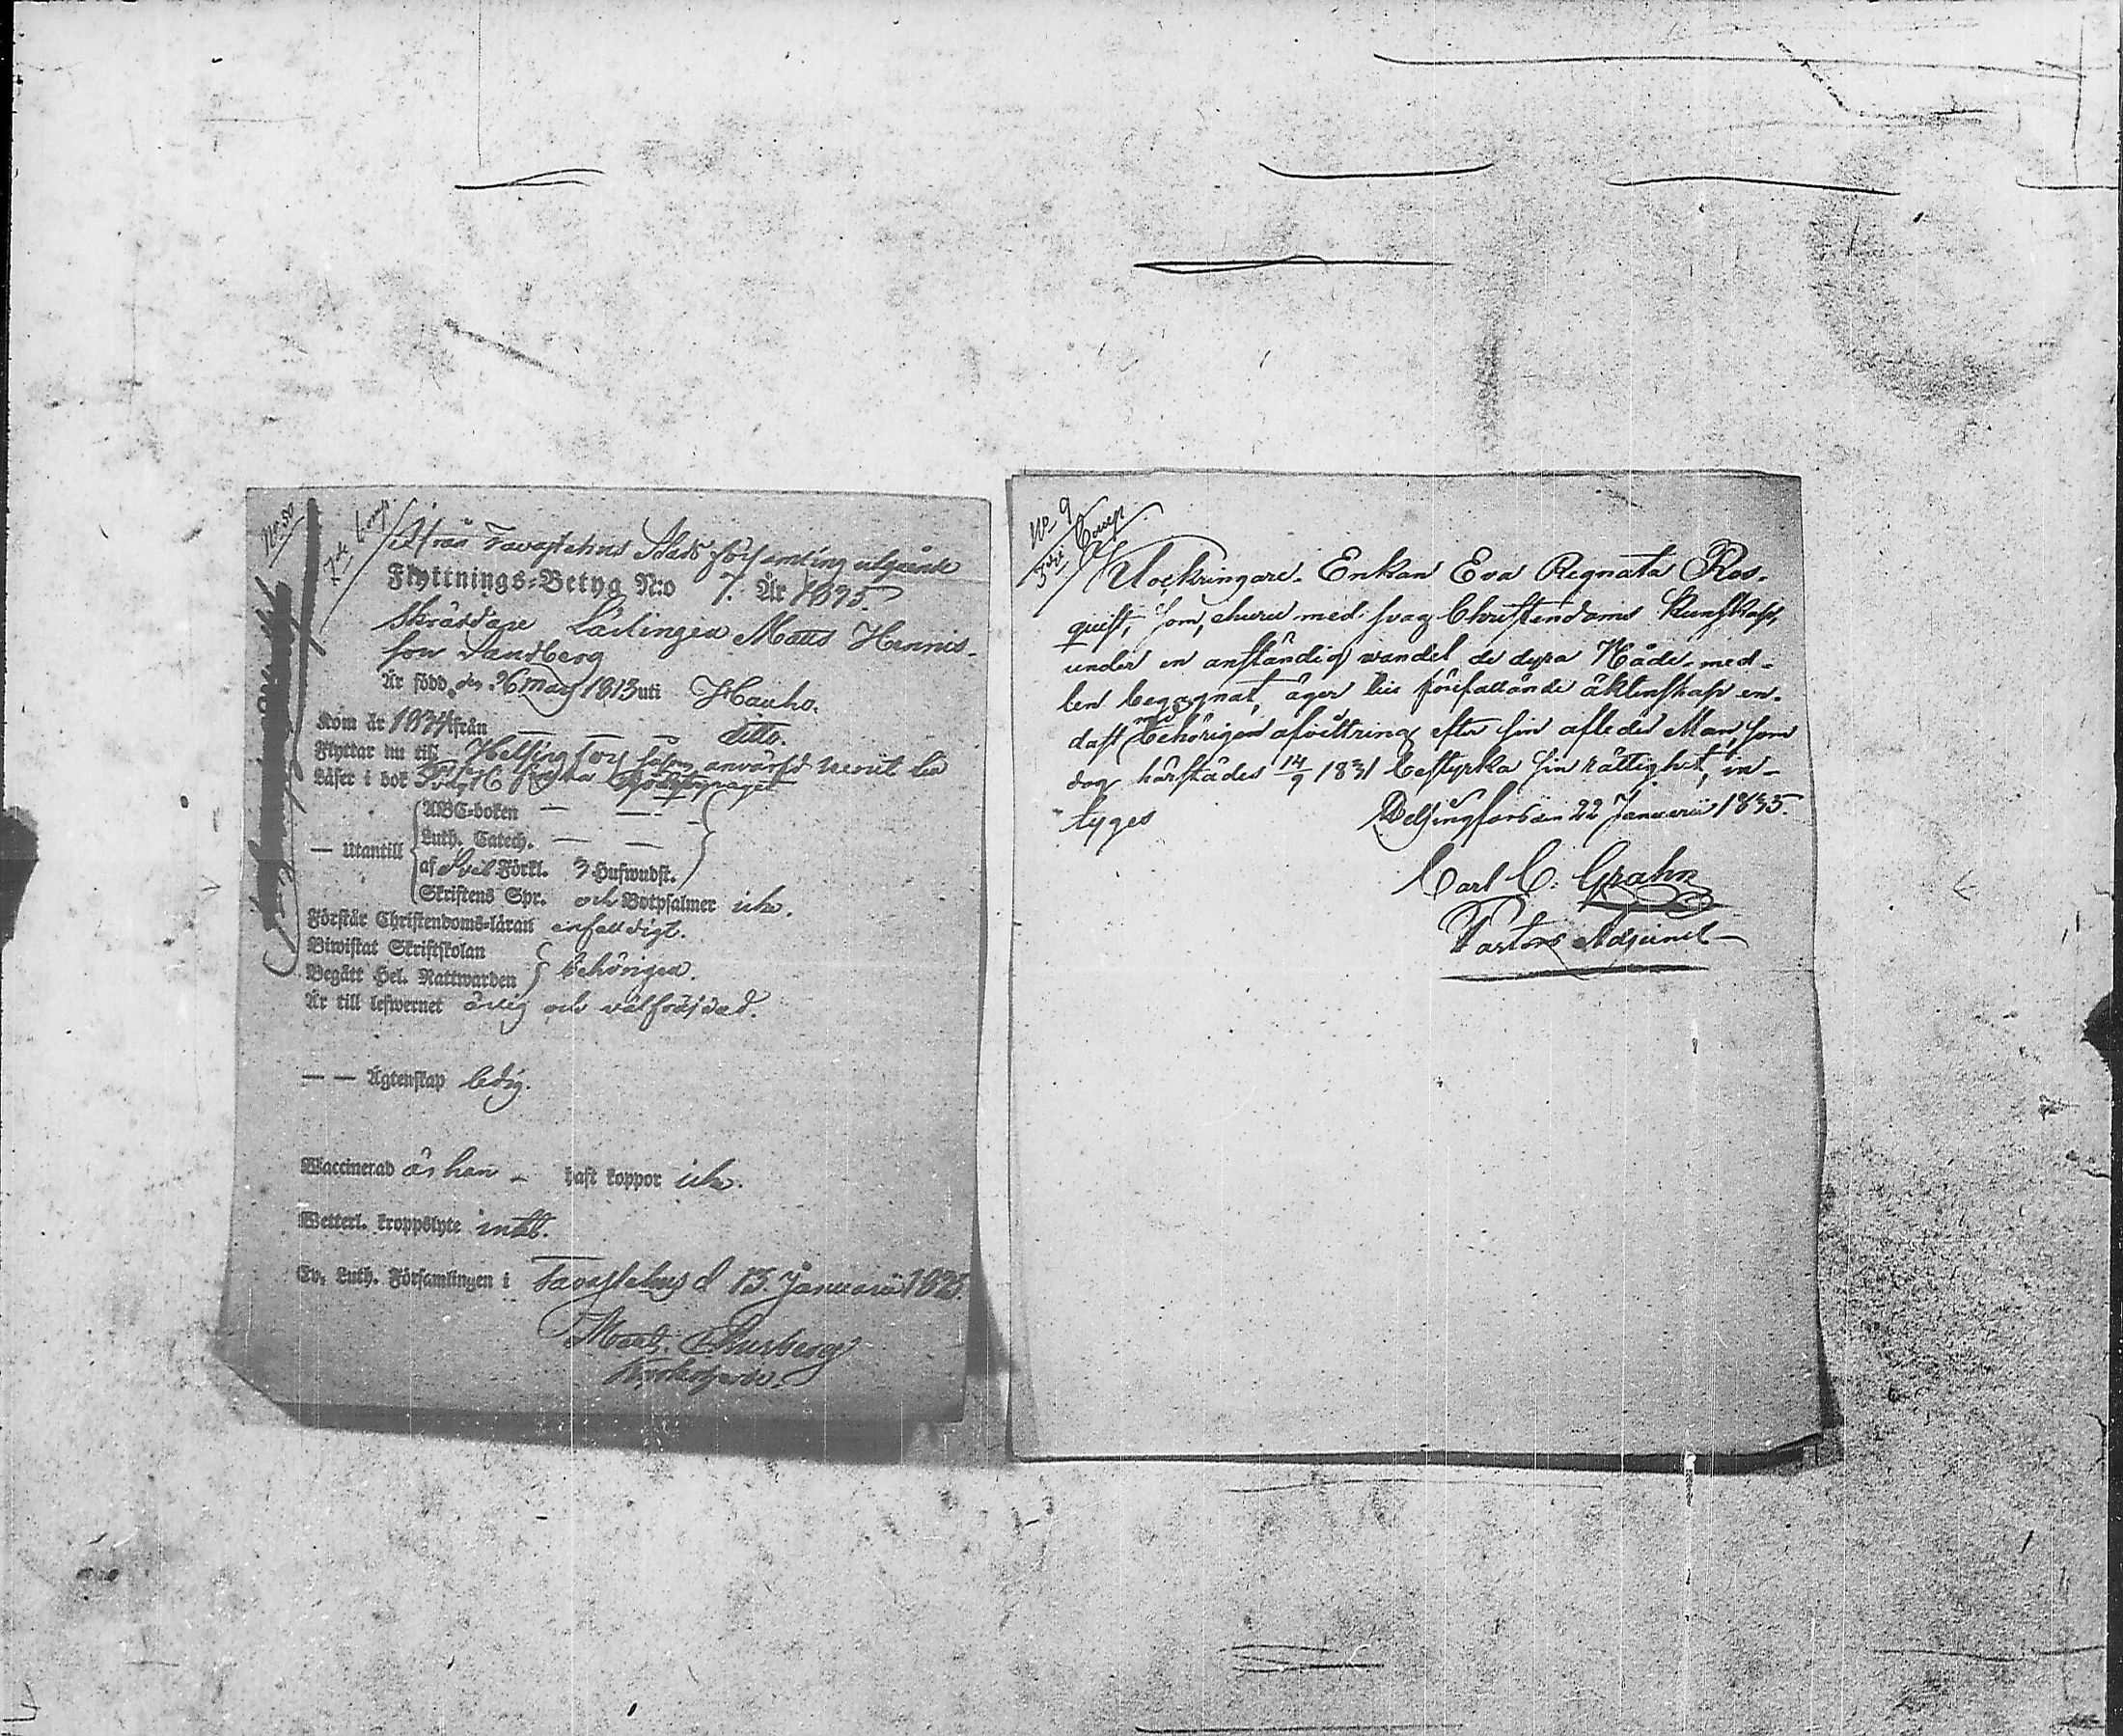 No 50
7de Comp
Ifrån Tavastehus Stads församling utgående
Flyttnings-Betyg N:o 7. År 1835.
Skräddare Lärlingen Matts Hennis-
son Sandberg
Är född den 26 Maji 1813 uti Hauho.
Kom år 1834 ifrån — — — ditto.
Flyttar nu till Helsingfors
Läser i bok
— Utantill
ABC-boken — —
Luth. Catech. — —
af Svel. Förkl. 3 Huswudst.
Skriftens Spr. och Botpsalmer icke.
Förstår Christendoms-läran enfaldigt.
Biwistat Skriftskolan
Begått Hel. Nattwarden } behörigen.
Är till lefwernet ärlig och välfräjdad.
— — Ägtenskap ledig.
Waccinerad är han — haft koppor icke.
Wetterl. kroppslyte intet.
Ev. Luth. Församlingen i Tavastehus d 13. Januarii 1835.
Kyrkoherde.
No 9
5te Comp
Enkan Eva Regnata Ros-
quist, som, ehuru med svag Christendoms Kunskap,
under en anständig vandel de dyra Nåde-med-
len begagnat, äger till förefallande äktenskap en-
dast med behörigen afvittring efter sin aflednе Man, som
dog härstädes 14/9 1831 bestyrka sin rättighet, in-
tyges Helsingfors den 22 Januarii 1835.
Carl C. Grahn
Pastors Adjunct